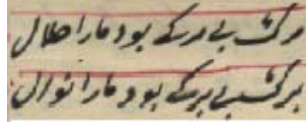 مرگ بی مرگی بود ما را حلال
برگ بی برگی بود ما را نوال